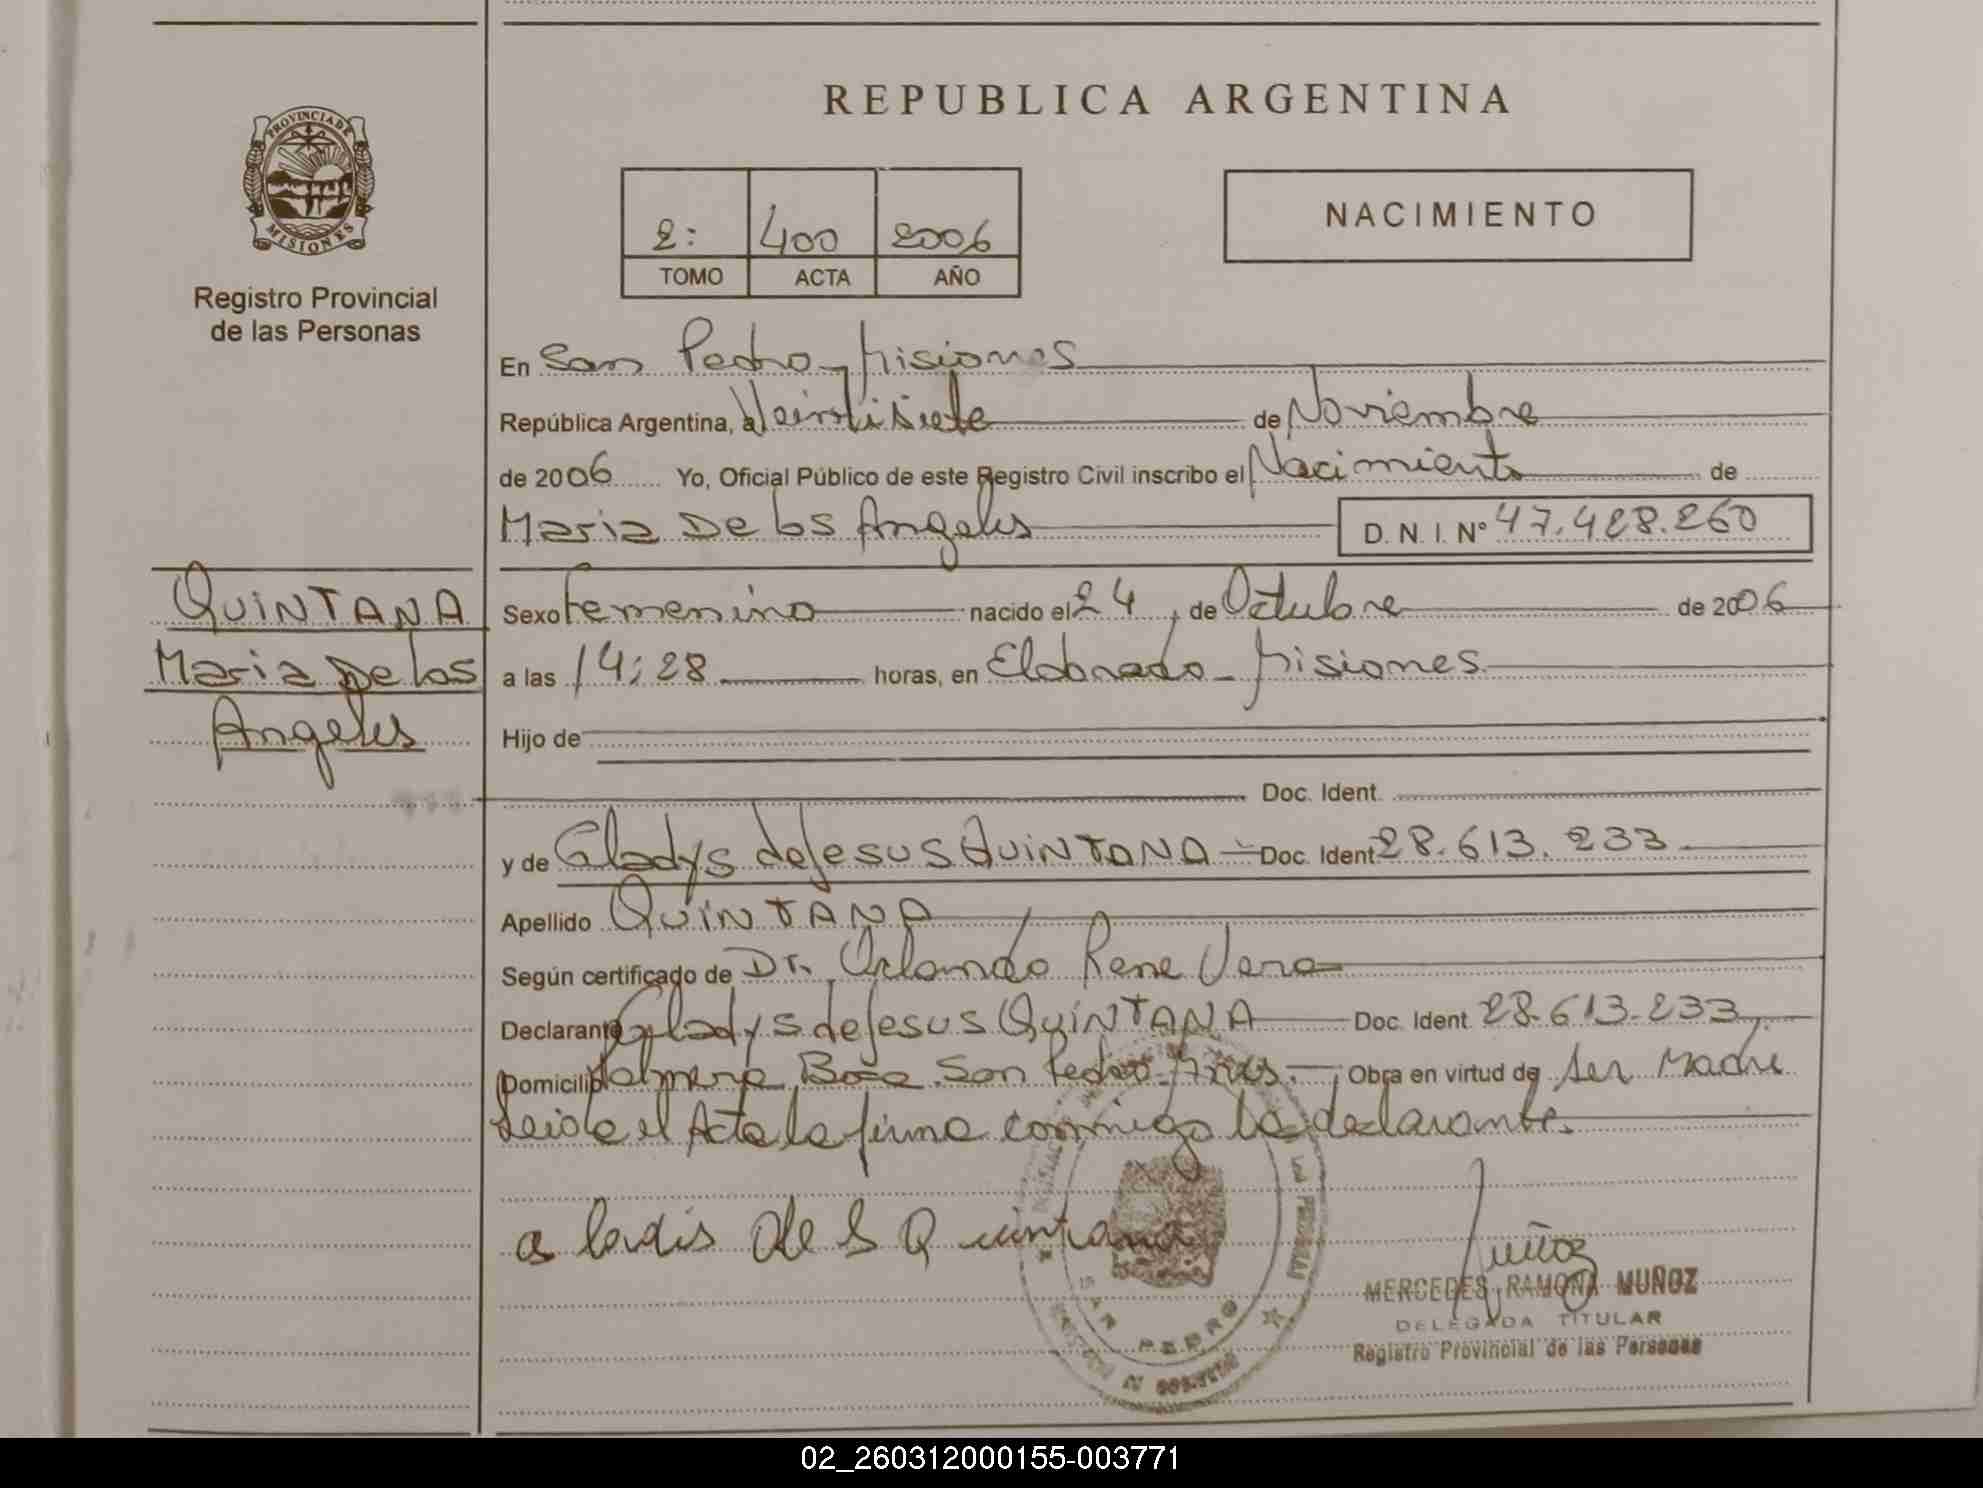 REPUBLICA ARGENTINA
PROVINCIA DE MISIONES
Registro Provincial
de las Personas
2: 400 2006
TOMO ACTA AÑO
NACIMIENTO
En San Pedro - Misiones
República Argentina, a Veintisiete de Noviembre
de 2006 Yo, Oficial Público de este Registro Civil inscribo el Nacimiento de
Maria De los Angeles D. N. I. Nº 47.428.260
QUINTANA
Maria De los
Angeles
Sexo Femenino nacido el 24 de Octubre de 2006
a las 14:28 horas, en Eldorado - Misiones
Hijo de
Doc. Ident.
y de Gladys de Jesus QUINTANA - Doc. Ident 28.613.233
Apellido QUINTANA
Según certificado de Dr. Orlando Rene Vera
Declarante Gladys de Jesus QUINTANA Doc. Ident 28.613.233
Domicilio Palmera Boca San Pedro - Obra en virtud de ser Madre
Leida el Acta la firma conmigo la declarante.
de S Quintana
SAN PEDRO
MISIONES
Muñoz
MERCEDES RAMONA MUÑOZ
DELEGADA TITULAR
Registro Provincial de las Personas
02_260312000155-003771